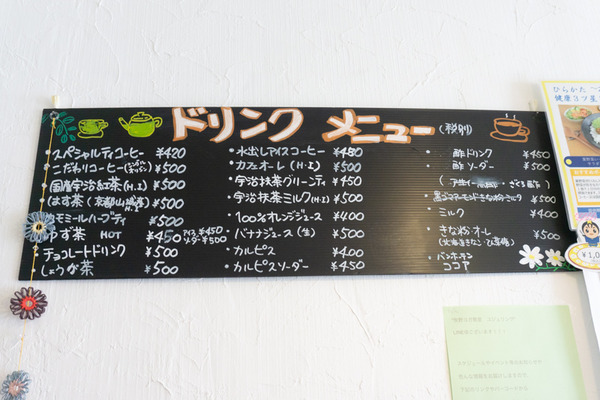 ドリンク メニュー (税別)
・スペシャルティコーヒー ¥420
・こだわりコーヒー ¥500
国産宇治紅茶(H.I) ¥500
はす茶 ¥500
カモミールハーブティ ¥500
ゆず茶 HOT ¥450 アイス¥450 ソーダ¥500
チョコレートドリンク ¥500
しょうが茶 ¥500
・水出しアイスコーヒー ¥480
・カフェオーレ(H・I) ¥500
・宇治抹茶グリーンティ ¥450
・宇治抹茶ミルク(H.I) ¥500
・100%オレンジジュース ¥400
・バナナジュース(生) ¥500
・カルピス ¥400
・カルピスソーダー ¥450
・酢ドリンク ¥450
・酢ソーダー ¥500
ざくろ酢)
¥500
・ミルク ¥400
・きな粉オレ ¥500
・バンホーテン
ココア
ひらかた
健康3ツ星
¥1,0